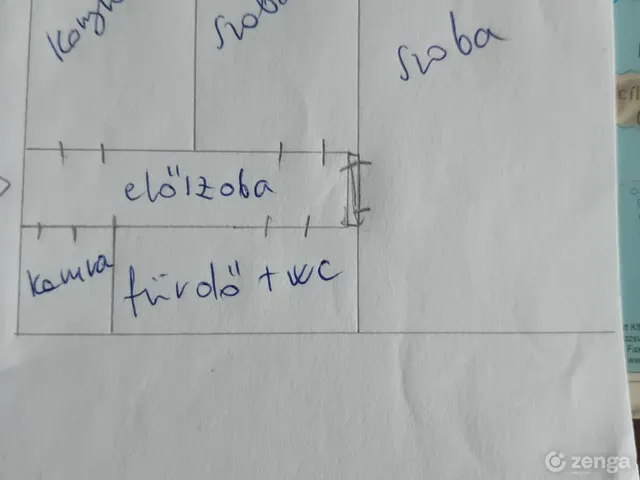 szoba
szoba
előszoba
kamra
fürdő + WC
zenga